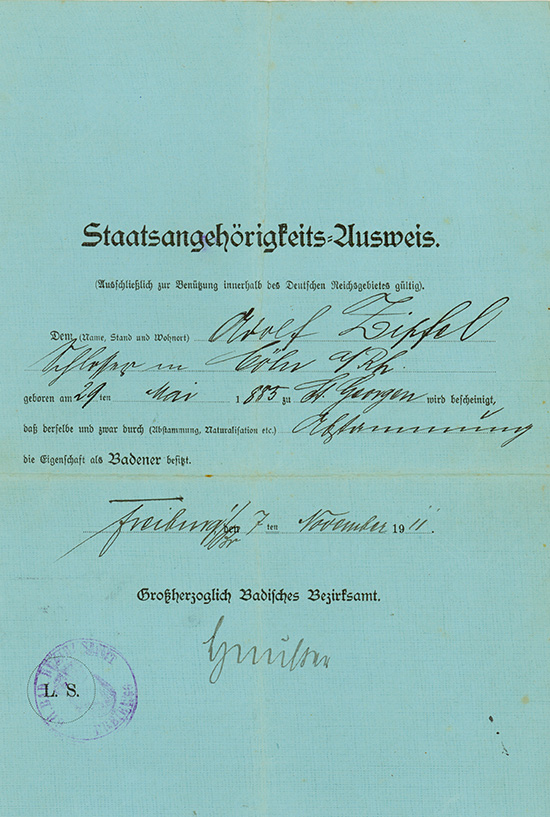 Staatsangehörigkeits-Ausweis.
(Ausschließlich zur Benützung innerhalb des Deutschen Reichsgebietes gültig).
Dem (Name, Stand und Wohnort) Adolf Zipfel
Schlosser in Cöln a/Rh.
geboren am 29 ten Mai 1885 zu St. Georgen wird bescheinigt,
daß derselbe und zwar durch (Abstammung, Naturalisation etc.) Abstammung
die Eigenschaft als Badener besitzt.
Freiburg i/Br den 7 ten November 1911.
Großherzoglich Badisches Bezirksamt.
L. S.
BAD